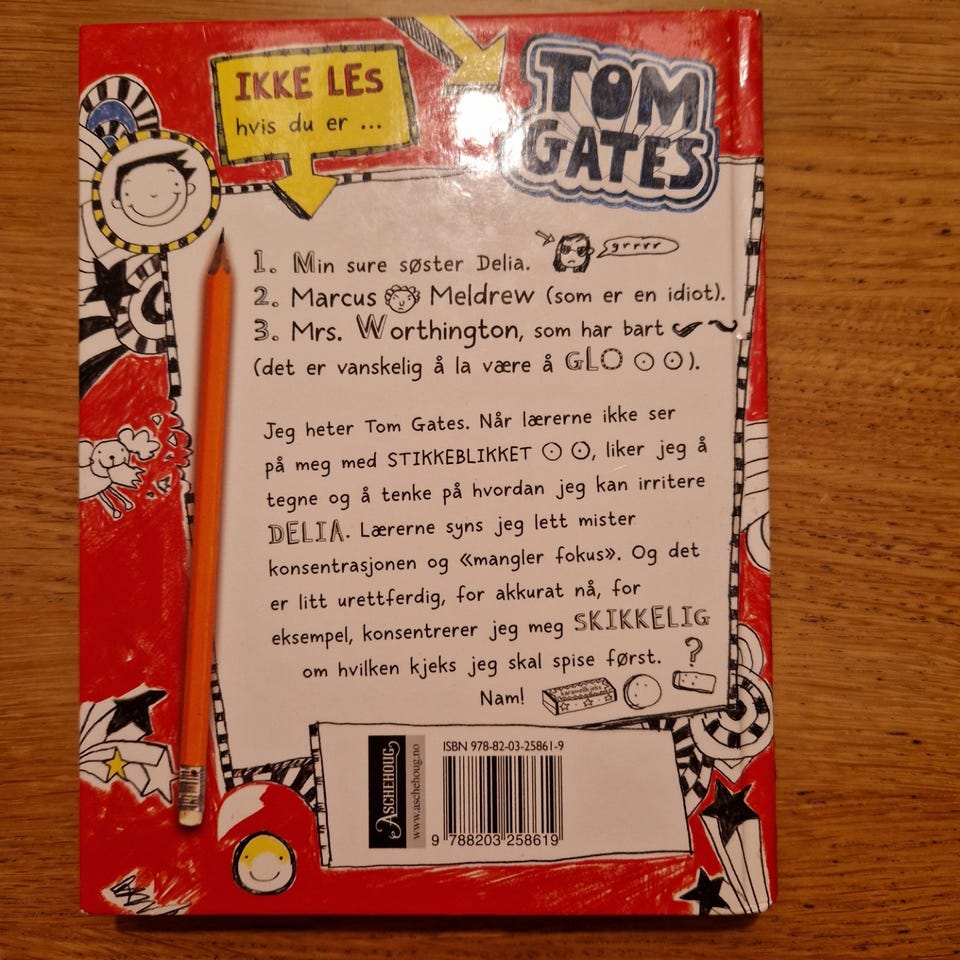 IKKE LES
hvis du er ...
TOM
GATES
1. Min sure søster Delia.
grrrr
2. Marcus Meldrew (som er en idiot).
3. Mrs. Worthington, som har bart
(det er vanskelig å la være å GLO).
Jeg heter Tom Gates. Når lærerne ikke ser
på meg med STIKKEBLIKKET, liker jeg å
tegne og å tenke på hvordan jeg kan irritere
DELIA. Lærerne syns jeg lett mister
konsentrasjonen og «mangler fokus». Og det
er litt urettferdig, for akkurat nå, for
eksempel, konsentrerer jeg meg SKIKKELIG
om hvilken kjeks jeg skal spise først.
?
Nam!
karamellkjeks
ASCHEHOUG
www.aschehoug.no
ISBN 978-82-03-25861-9
9 788203 258619